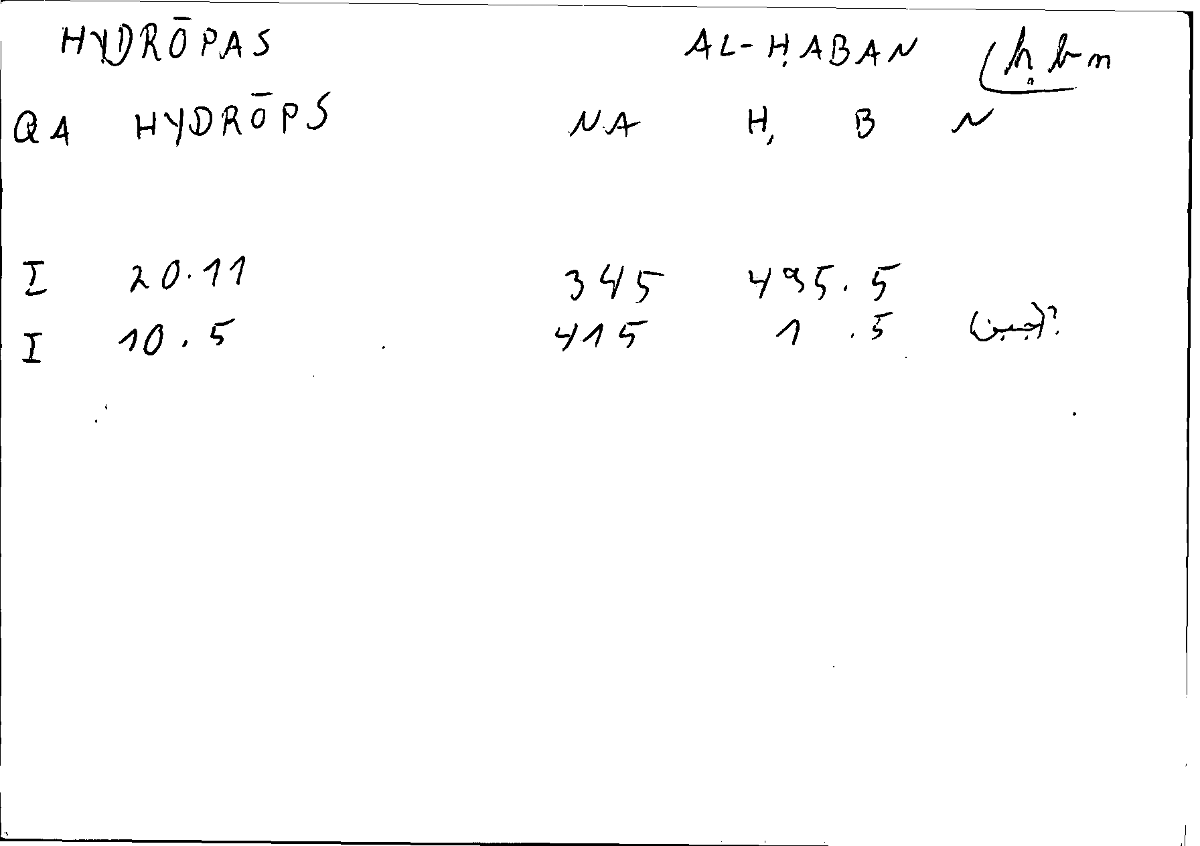 HYDRŌPAS AL-ḤABAN ḥbn
QA HYDRŌPS NA Ḥ B N
I 20.11 345 495.5
I 10.5 415 1 .5 (جبن)?